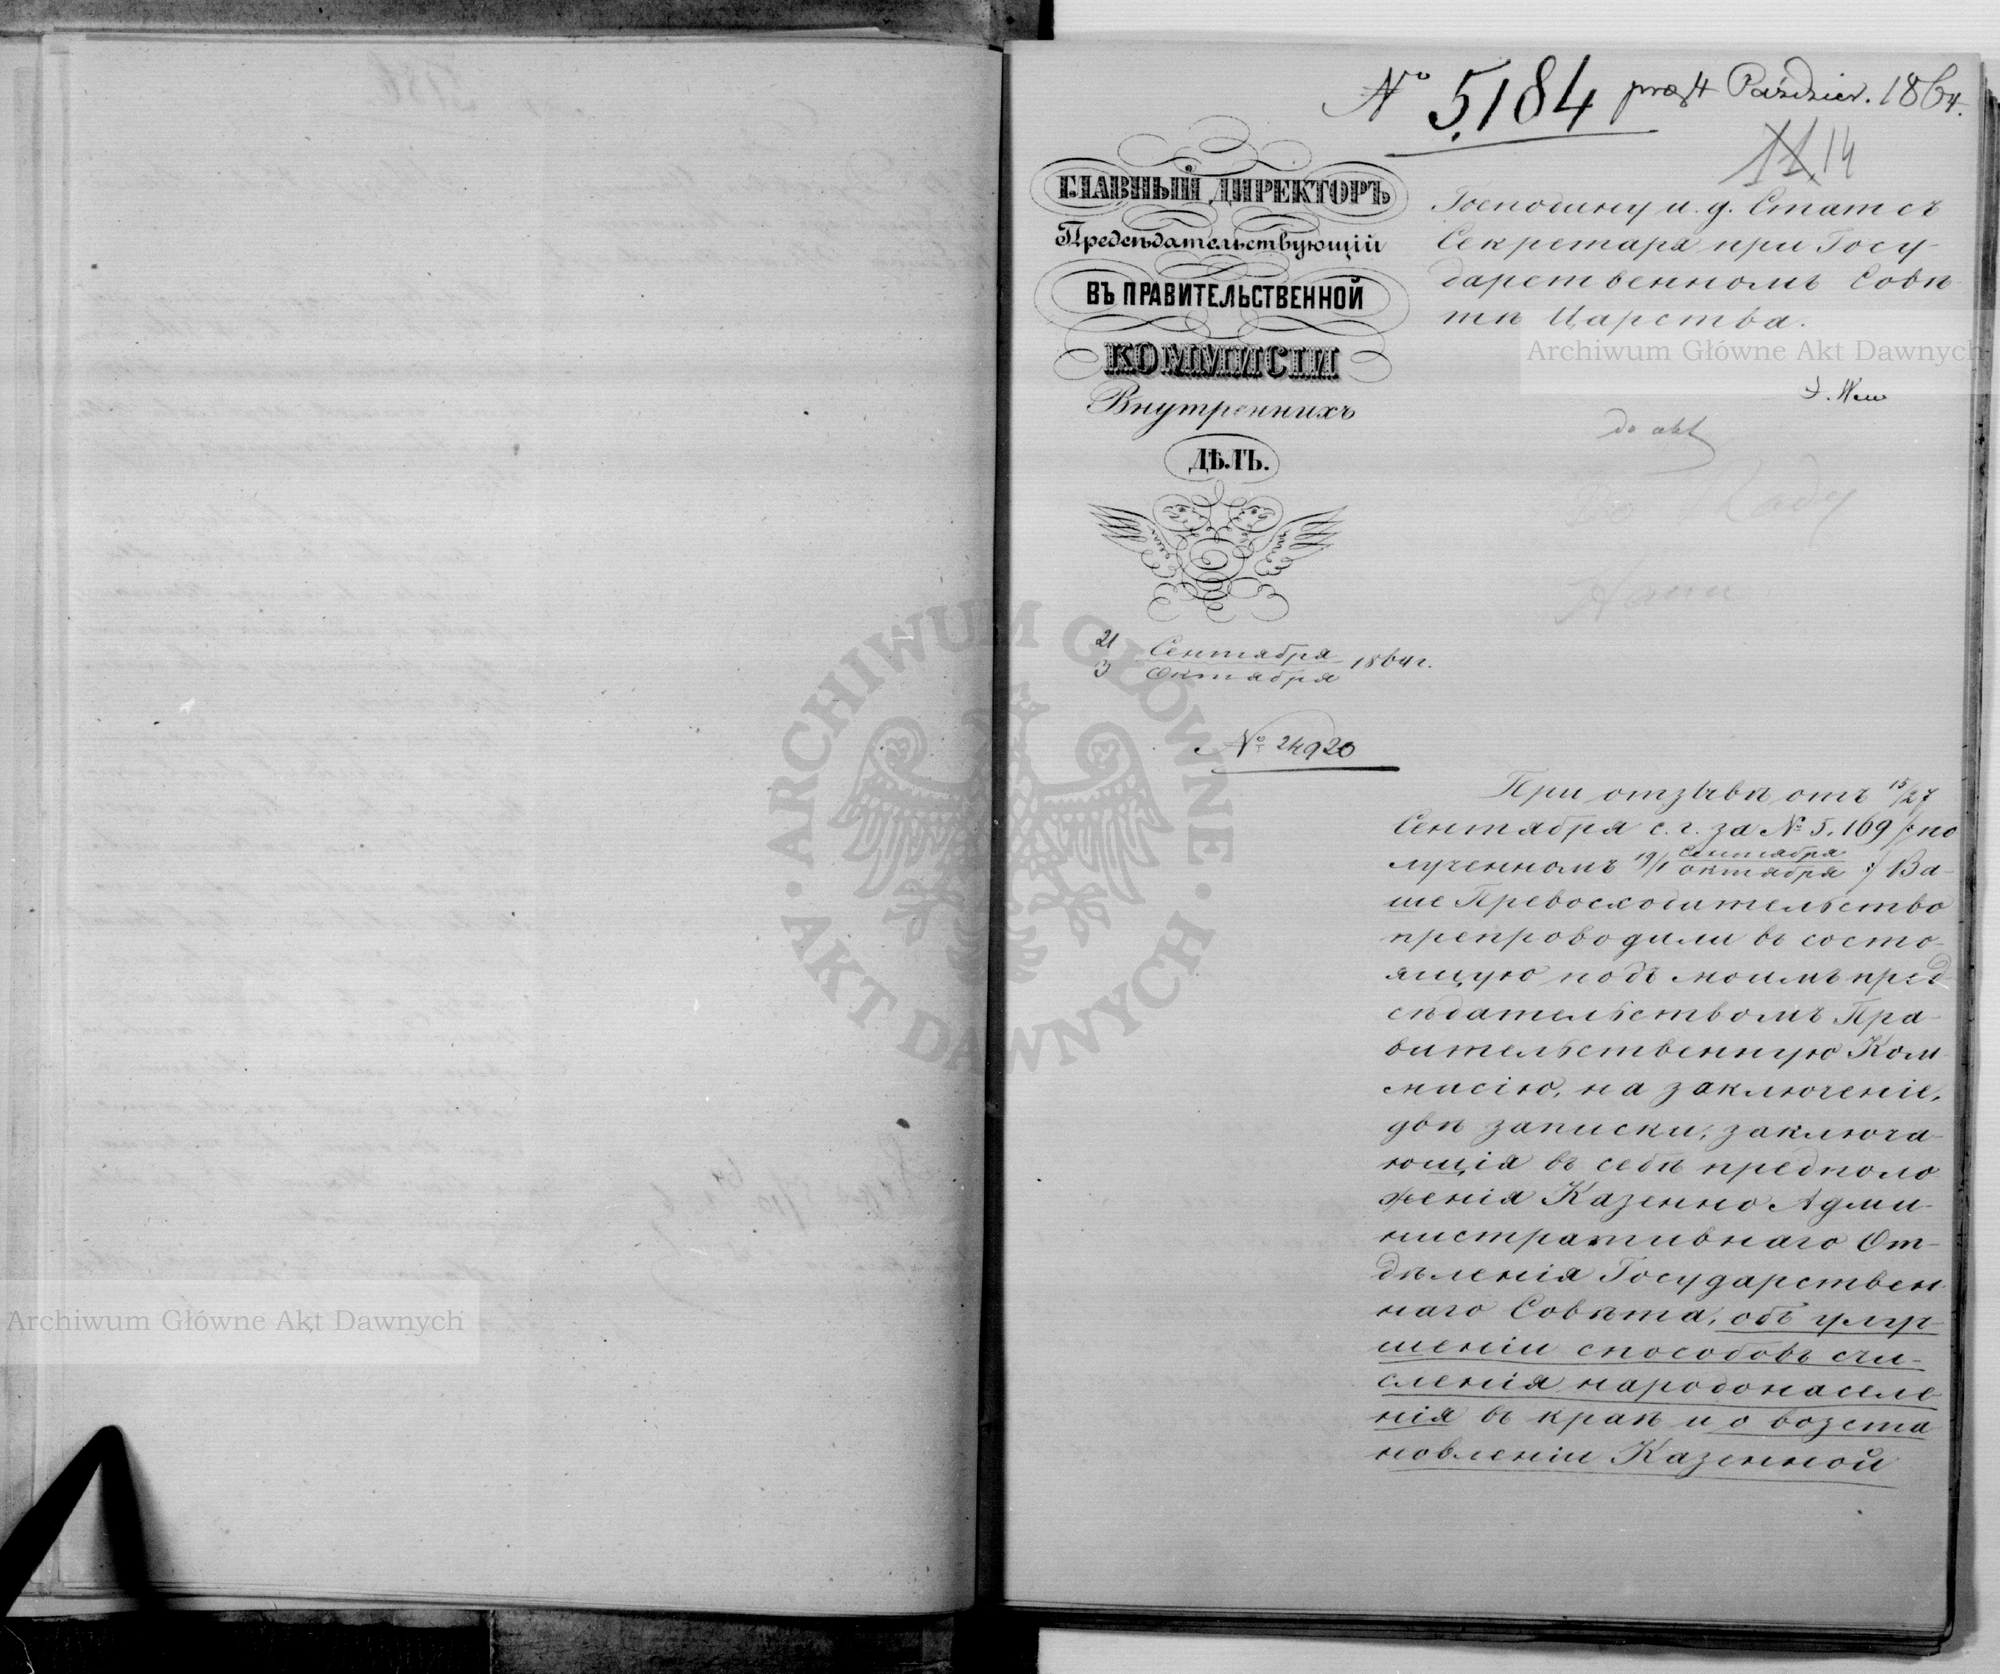 № 5184 Paździer. 1864.
14
ГЛАВНЫЙ ДИРЕКТОРЪ
Предсѣдательствующій
ВЪ ПРАВИТЕЛЬСТВЕННОЙ
КОММИСІИ
Внутреннихъ
ДѢЛЪ.
Господину и. д. Статсъ
Секретаря при Госу-
дарственномъ Совѣ-
тѣ Царства.
Archiwum Główne Akt Dawnych
do akt
21 Сентября
3 Октября 1864 г.
№ 24920
ARCHIWUM GŁÓWNE · AKT DAWNYCH ·
При отзывѣ отъ 15/27
Сентября с. г. за № 5.169 /: по
лученномъ 19/1 Сентября
Октября :/ Ва-
ше Превосходительство
препроводили въ состо-
ящую подъ моимъ пред-
сѣдательствомъ Пра-
вительственную Ком-
мисію, на заключеніе,
двѣ записки, заключа-
ющія въ себѣ предполо
женія Казенно Адми-
нистративнаго От-
дѣленія Государствен-
наго Совѣта, объ улуч-
шеніи способовъ счи-
сленія народонаселе
нія въ краѣ и о возста
новленіи Казенной
Archiwum Główne Akt Dawnych